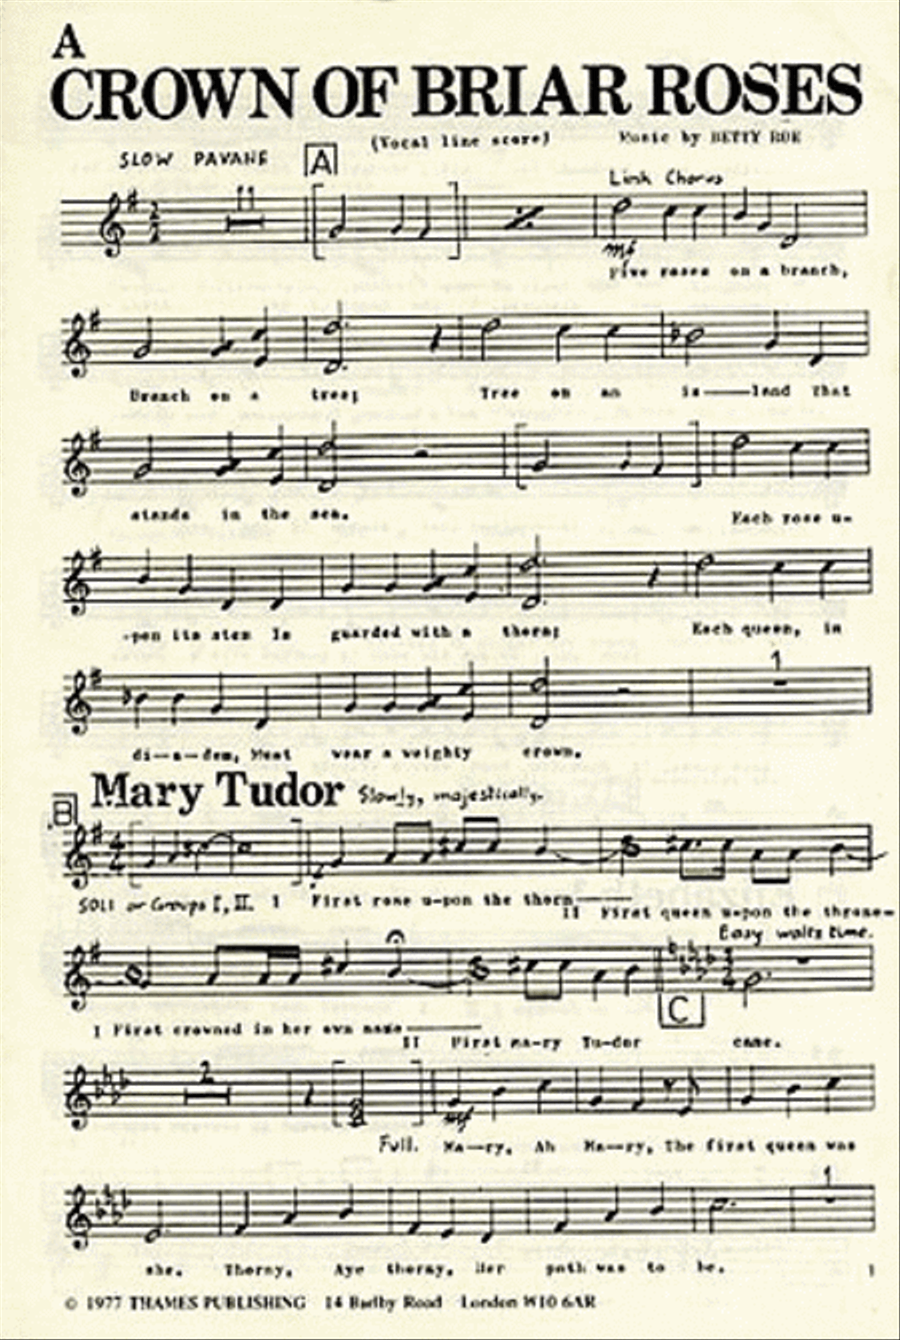 A
CROWN OF BRIAR ROSES
(Vocal line score) Music by BETTY ROE
SLOW PAVANE A
11
Link Chorus
mf
Five roses on a branch,
Branch on a tree; Tree on an is——land That
stands in the sea. Each rose u-
-pon its stem Is guarded with a thorn;
Each queen, in
1
di—a—dem, Must wear a weighty crown.
Mary Tudor Slowly, majestically.
B
SOLI or Groups I, II. I First rose u-pon the thorn
II First queen upon the throne-
Easy waltz time.
I First crowned in her own name
II First Ma-ry Tu-dor came.
C
2
mf
Full. Ma—ry, Ah Ma—ry, The first queen was
1
she. Thorny, Aye thorny, Her path was to be. 1
© 1977 THAMES PUBLISHING 14 Barlby Road London W10 6AR